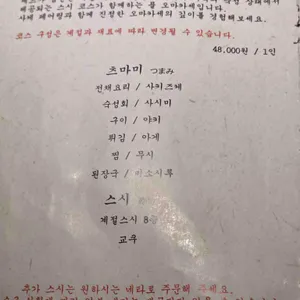 상태에서
제공되는 스시 코스가 함께하는 풀 오마카세입니다.
사케 페어링과 함께 진정한 오마카세의 깊이를 경험해보세요.
코스 구성은 계절과 재료에 따라 변경될 수 있습니다.
48.000원 / 1인
츠마미 つまみ
전채요리 / 사키즈케
숙성회 / 사시미
구이 / 야키
튀김 / 아게
찜 / 무시
된장국 / 미소시루
스시
계절스시 8
교쿠
추가 스시는 원하시는 네타로 주문해 주세요.